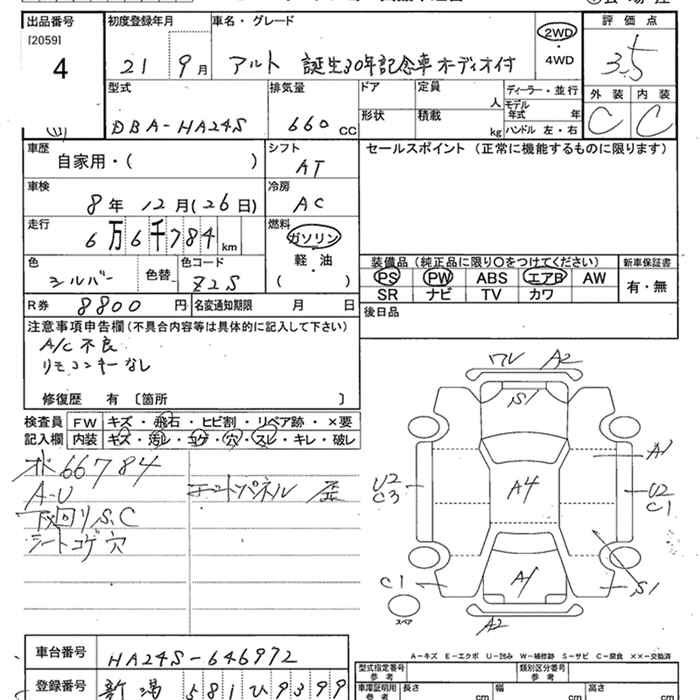 出品番号 初度登録年月 車名・グレード 評価点
[2059]
4
21 9月 アルト 誕生30年記念車オーディオ付 2WD・4WD 3.5
型式 排気量 ドア 定員 人 ディーラー・並行 外装 内装
モデル年式 年
DBA-HA24S 660 CC 形状 積載 kg ハンドル 左・右 C C
車歴 シフト セールスポイント (正常に機能するものに限ります)
自家用・( ) AT
車検 冷房
8年 12月(26日) AC
走行 燃料
6万6千784km ガソリン
軽・油
( )
色 色替 色コード
シルバー Z2S
装備品 (純正品に限り〇をつけてください) 新車保証書
PS PW ABS エアB AW 有・無
SR ナビ TV カワ
R券 8800円 名変通知期限 月 日 後日品
注意事項申告欄(不具合内容等は具体的に記入して下さい)
A/C不良
リモコンキーなし
修復歴 有 〔箇所 〕
検査員 FW キズ・飛石・ヒビ割・リペア跡・×要
記入欄 内装 キズ・汚レ・コゲ・穴・スレ・キレ・破レ
66784
A-U パネル 歪
下回りS.C
シートコゲ穴
ワレ A2
S1
A1
U2
C3
A4
U2
C1
C1
A1
S1
スペア
A2
A-キズ E-エクボ U-凹み W-補修跡 S-サビ C-腐食 ××-交換済
車台番号 HA24S-646972
型式指定番号 参考 類別区分番号 参考
登録番号 新潟 581ひ9399
車庫証明用 参考 長さ cm 幅 cm 高さ cm